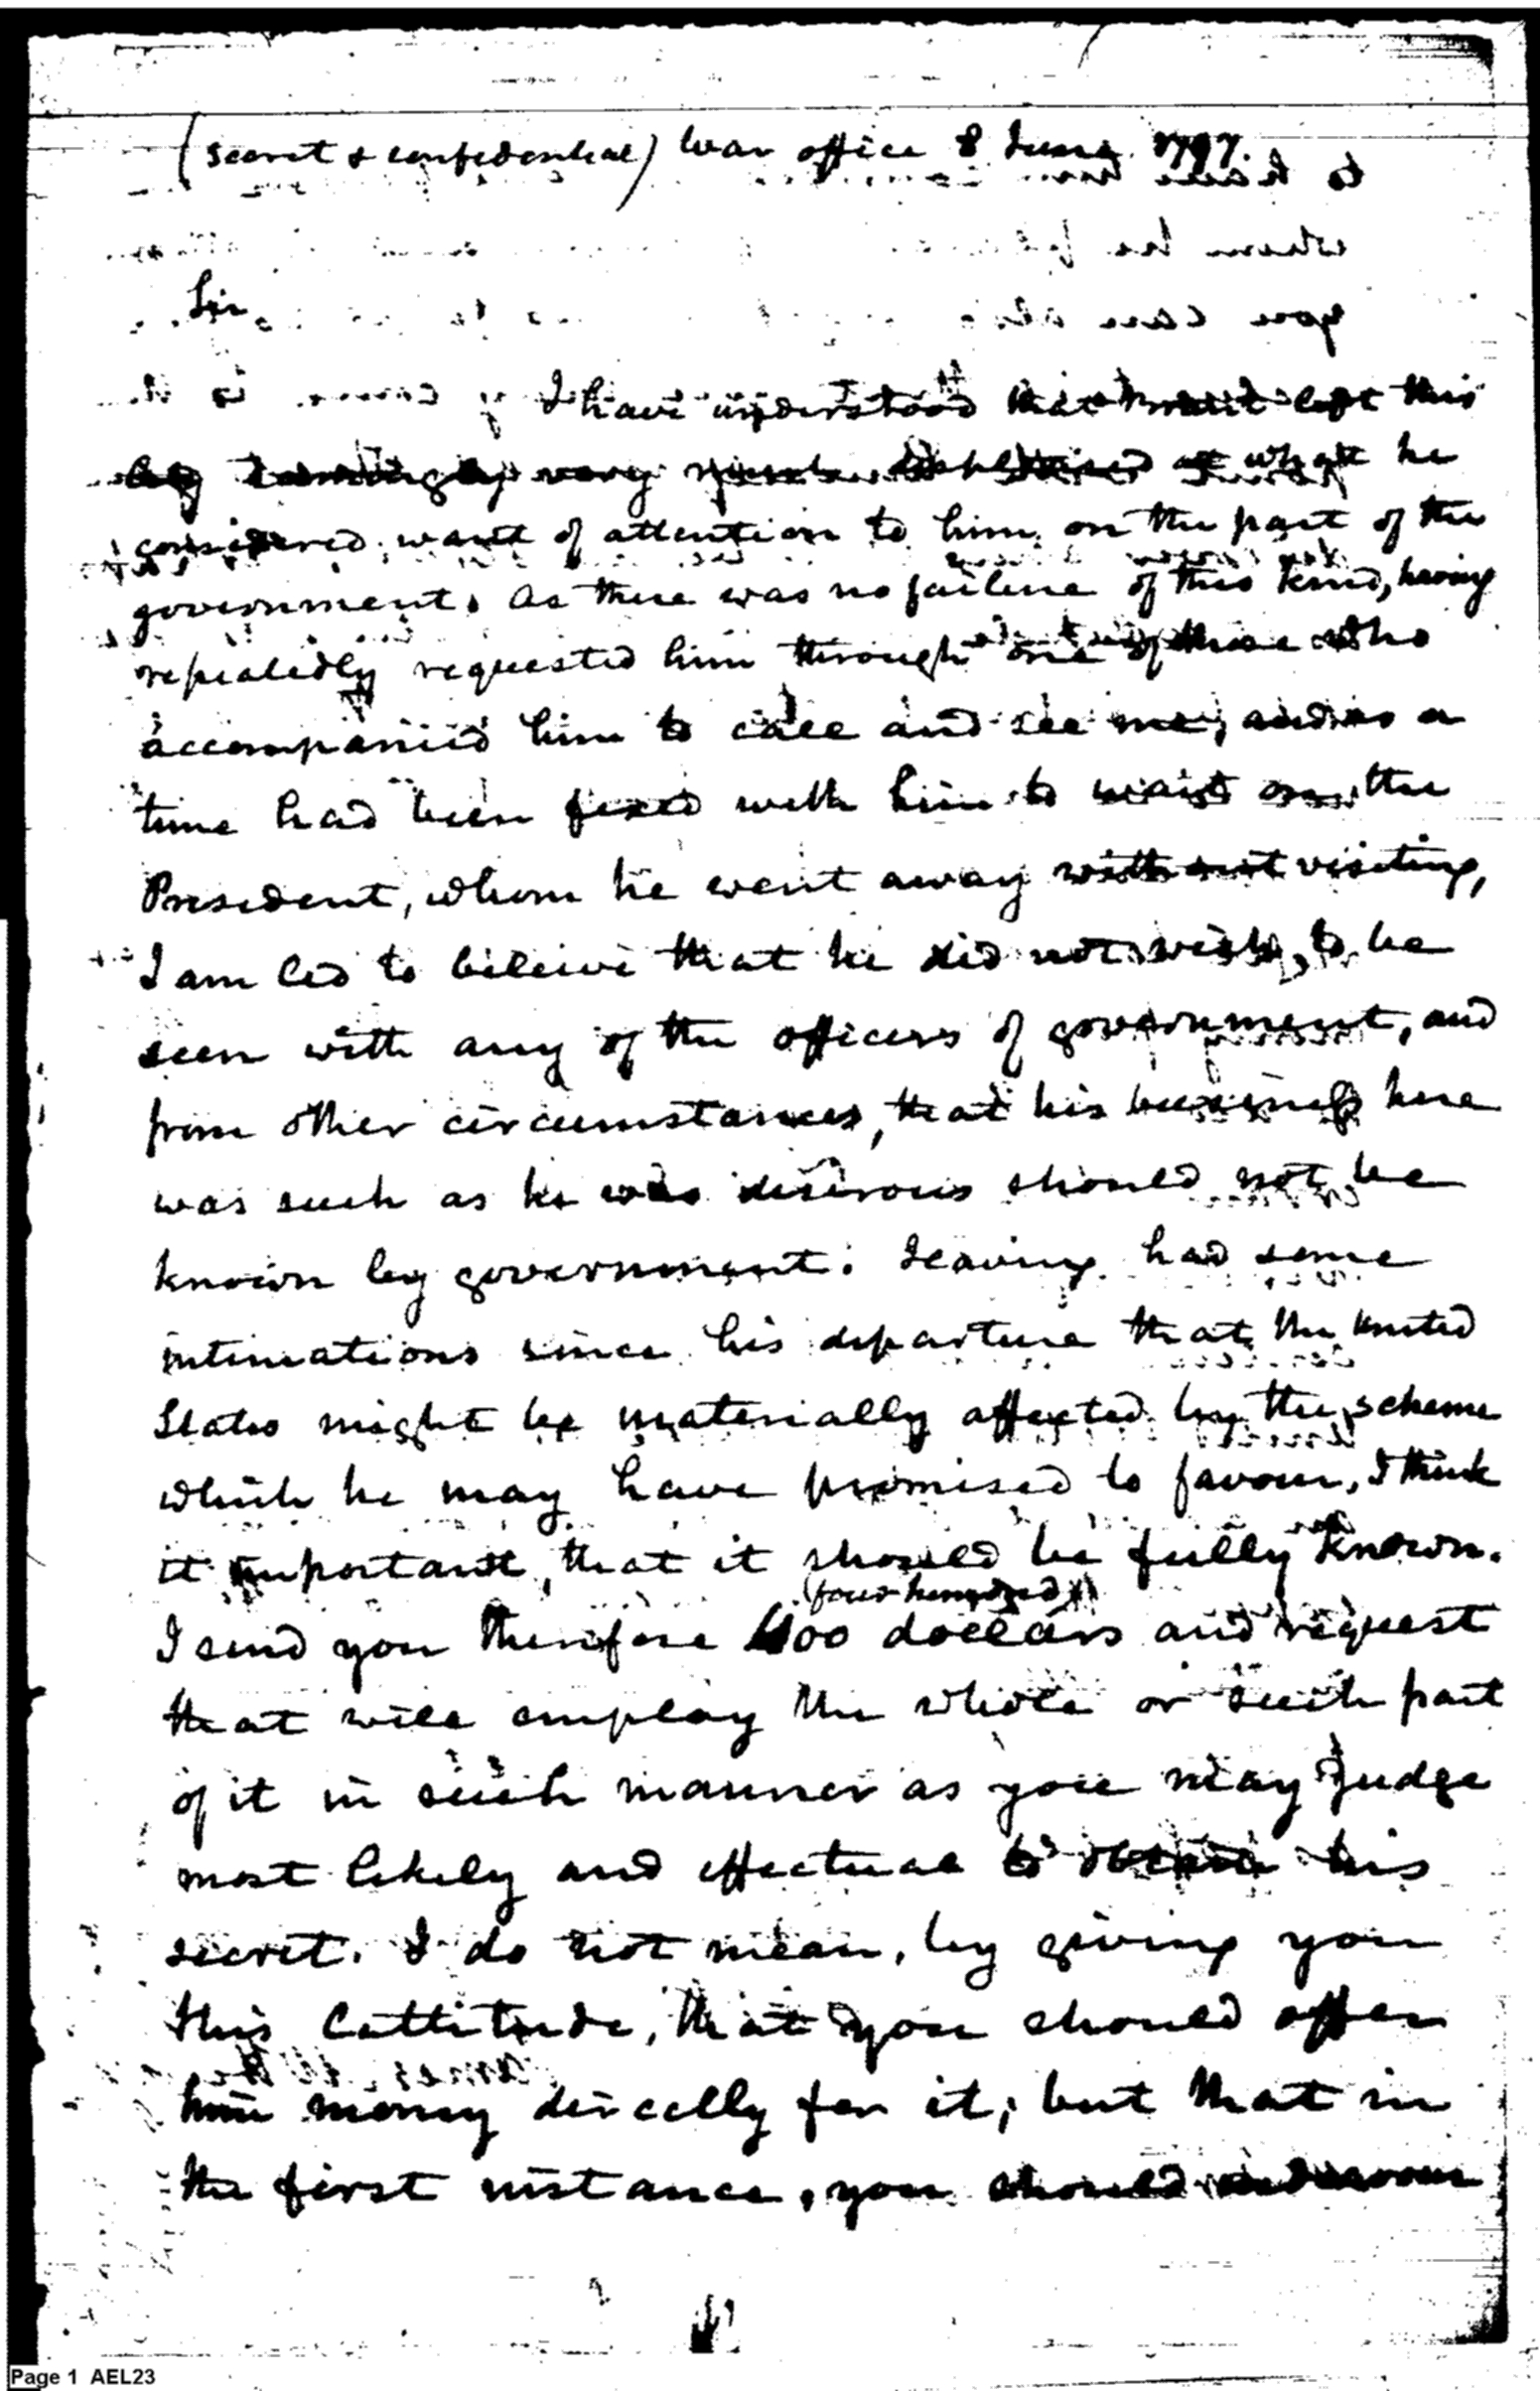 (Secret & confidential) War office 8 June 1797.
Sir,
I have understood that left this
very much at what he
considered want of attention to him, on the part of the
government. As there was no failure of this kind, having
repeatedly requested him through one of those who
accompanied him to call and see me; and as a
time had been fixed with him to wait on the
President, whom he went away without visiting,
I am led to beleive that he did not wish, to be
seen with any of the officers of government, and
from other circumstances, that his business here
was such as he was desirous should not be
known by government. Having had some
intimations since his departure that the United
States might be materially affected by the scheme
which he may have promised to favour, I think
it important, that it should be fully known.
(four hundred)
I send you therefore 400 dollars and request
that will employ the whole or such part
of it in such manner as you may Judge
most likely and effectual to obtain his
secret. I do not mean, by giving you
this lattitude, that you should offer
him money directly for it; but that in
the first instance, you should endeavour
Page 1 AEL23